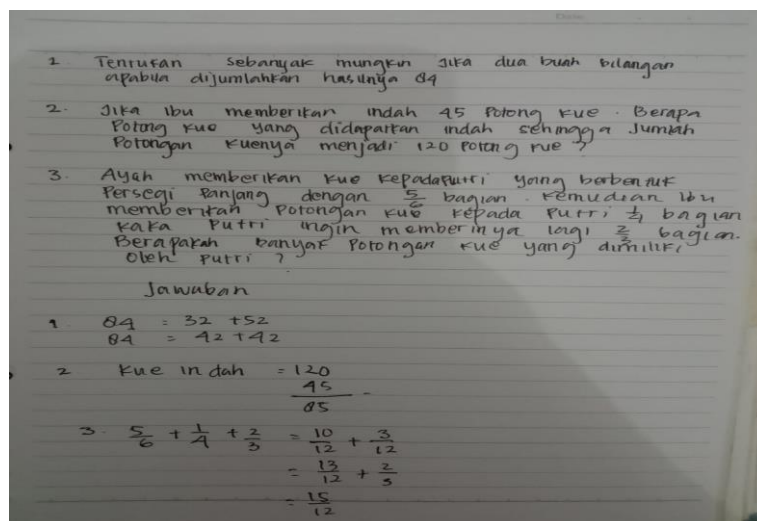 1 Tenrukan sebanyak mungkin Jika dua buah bilangan
apabila dijumlahkan hasilnya 84
2. Jika Ibu memberikan Indah 45 Potong kue. Berapa
Potong kue yang didapatkan indah sehingga Jumlah
Potongan kuenya menjadi 120 potong kue ?
3. Ayah memberikan kue kepadaputri yang berbentuk
Persegi Panjang dengan 5/6 bagian. Kemudian Ibu
memberikan Potongan kue kepada Putri 1/4 bagian
kaka Putri ingin memberinya lagi 2/3 bagian.
Berapakah banyak Potongan kue yang dimiliki
oleh Putri ?
Jawaban
1 84 = 32 +52
84 = 42 +42
2 Kue indah = 120
45 -
85
3. 5/6 + 1/4 + 2/3 = 10/12 + 3/12
= 13/12 + 2/3
= 15/12